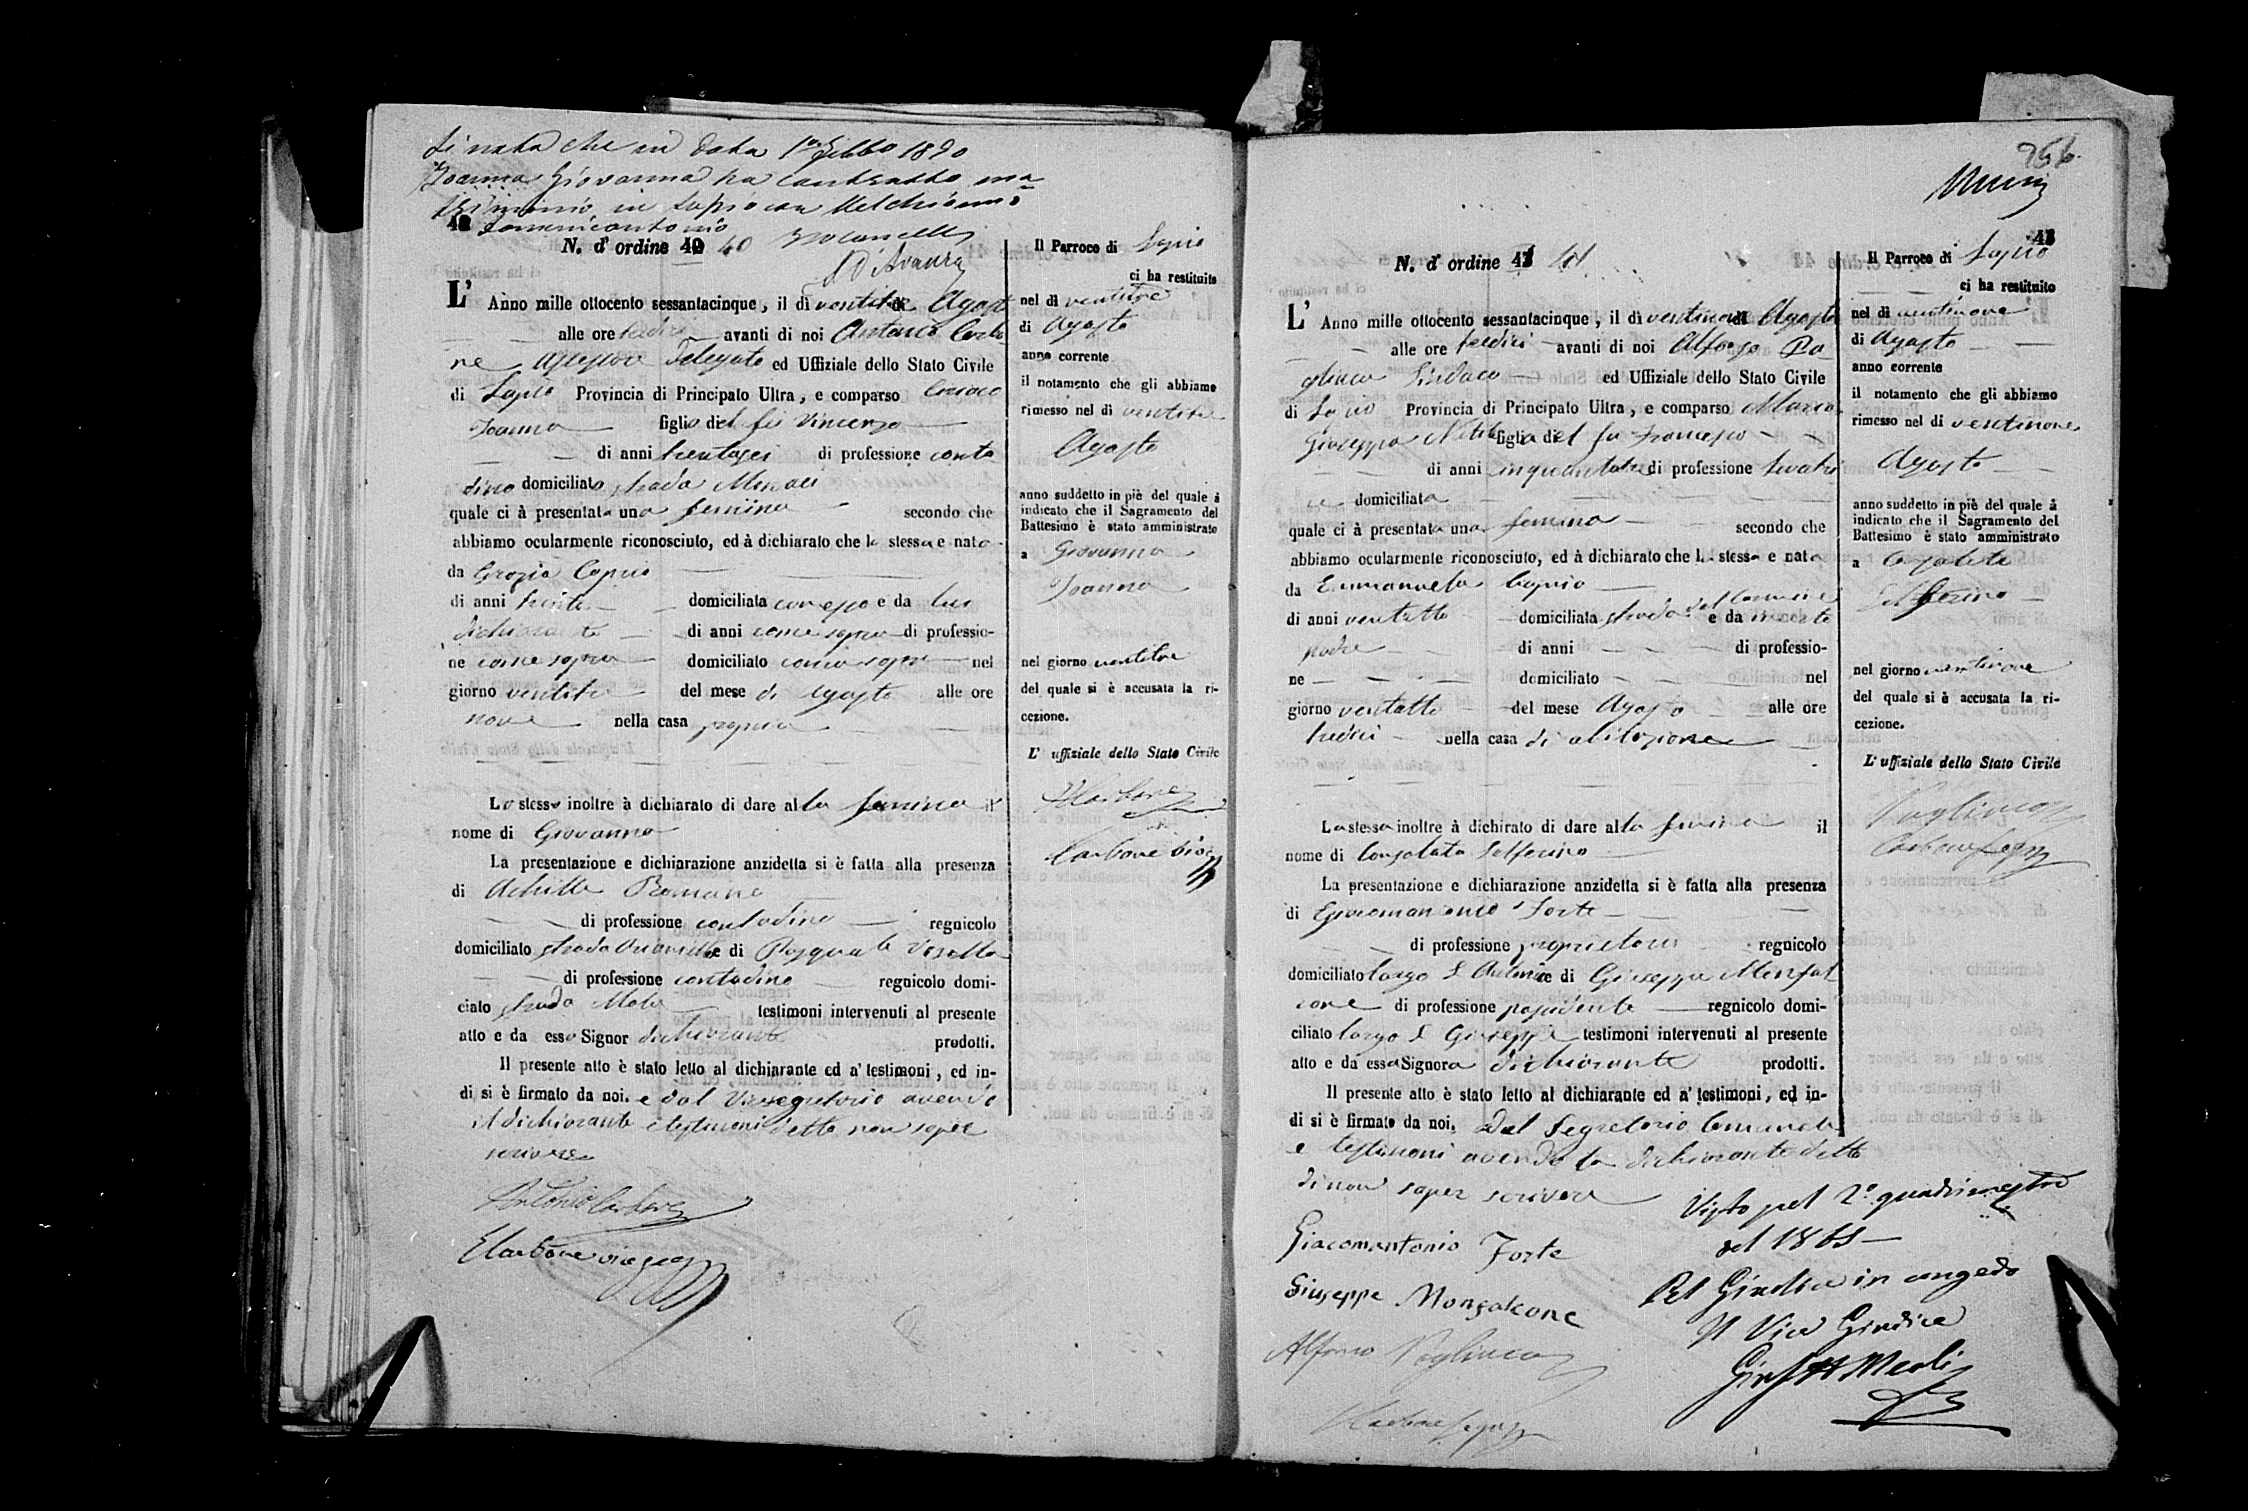 Si nota che in data 1° Febbo 1890
Ioanna Giovanna ha contratto ma
trimonio in Lapio con Melchionno
Domenicantonio
40
N. d' ordine 40 40
D'Avanzo
L' Anno mille ottocento sessantacinque, il dì ventitre di Agosto
alle ore tredici avanti di noi Antonio Carbo
ne Assessore Delegato ed Uffiziale dello Stato Civile
di Lapio Provincia di Principato Ultra, e comparso
Ioanna figlio del fu Vincenzo
di anni trentasei di professione conta
dino domiciliato strada
quale ci à presentata una femina secondo che
abbiamo ocularmente riconosciuto, ed à dichiarato che la stessa e nata
da Grazia Caprio
di anni trenta domiciliata con esso e da lui
dichiarante di anni come sopra di professio-
ne come sopra domiciliato come sopra nel
giorno ventitre del mese di Agosto alle ore
nove nella casa propria
Lo stesso inoltre à dichiarato di dare alla femina il
nome di Giovanna
La presentazione e dichiarazione anzidetta si è fatta alla presenza
di Achille Romano
di professione contadino regnicolo
domiciliato strada e di Pasquale
di professione contadino regnicolo domi-
ciato strada testimoni intervenuti al presente
atto e da esso Signor dichiarante prodotti.
Il presente atto è stato letto al dichiarante ed a' testimoni, ed in-
di si è firmato da noi. e dal Vicesegretario avendo
il dichiarante e testimoni detto non saper
scrivere
Antonio Carbone
Carbone
Il Parroco di Lapio
ci ha restituito
nel dì ventitre
di Agosto
anno corrente
il notamento che gli abbiamo
rimesso nel di ventitre
Agosto
anno suddetto in piè del quale à
indicato che il Sagramento del
Battesimo è stato amministrato
a Giovanna
Ioanna
nel giorno ventitre
del quale si è accusata la ri-
cezione.
L' uffiziale dello Stato Civile
Carbone
Carbone
256
43
N. d' ordine 41
L' Anno mille ottocento sessantacinque, il dì ventinove di Agosto
alle ore tredici avanti di noi Alfonso Pa
gliuca Sindaco ed Uffiziale dello Stato Civile
di Lapio Provincia di Principato Ultra, e comparso Maria
Giuseppa figlia del fu Francesco
di anni cinquantatre di professione levatri
ce domiciliata
quale ci à presentata una femina secondo che
abbiamo ocularmente riconosciuto, ed à dichiarato che la stessa e nata
da Emmanuela Caprio
di anni ventotto domiciliata strada del Carmine e da incerto
padre di anni di professio-
ne domiciliato nel
giorno ventotto del mese Agosto alle ore
tredici nella casa di abitazione
La stessa inoltre à dichirato di dare alla femina il
nome di Consolata Solferino
La presentazione e dichiarazione anzidetta si è fatta alla presenza
di Giacomantonio Forte
di professione proprietario regnicolo
domiciliato largo S. Antonio e di Giuseppe Monfal
cone di professione possidente regnicolo domi-
ciliato largo S Giuseppe testimoni intervenuti al presente
atto e da essa Signora dichiarante prodotti.
Il presente atto è stato letto al dichiarante ed a' testimoni, ed in-
di si è firmato da noi. Dal Segretario Comunale
e testimoni avendo la dichiarante detto
di non saper scrivere
Giacomantonio Forte
Giuseppe Monfalcone
Alfonso Pagliuca
Carbone Segr
Visto pel 2° quadrimestre
del 1865
Pel Giudice in congedo
Il Vice Giudice
Il Parroco di Lapio
ci ha restituito
nel dì ventinove
di Agosto
anno corrente
il notamento che gli abbiamo
rimesso nel di ventinove
Agosto
anno suddetto in piè del quale à
indicato che il Sagramento del
Battesimo è stato amministrato
a
Solferino
nel giorno ventinove
del quale si è accusata la ri-
cezione.
L' uffiziale dello Stato Civile
Pagliuca
Carbone Segr